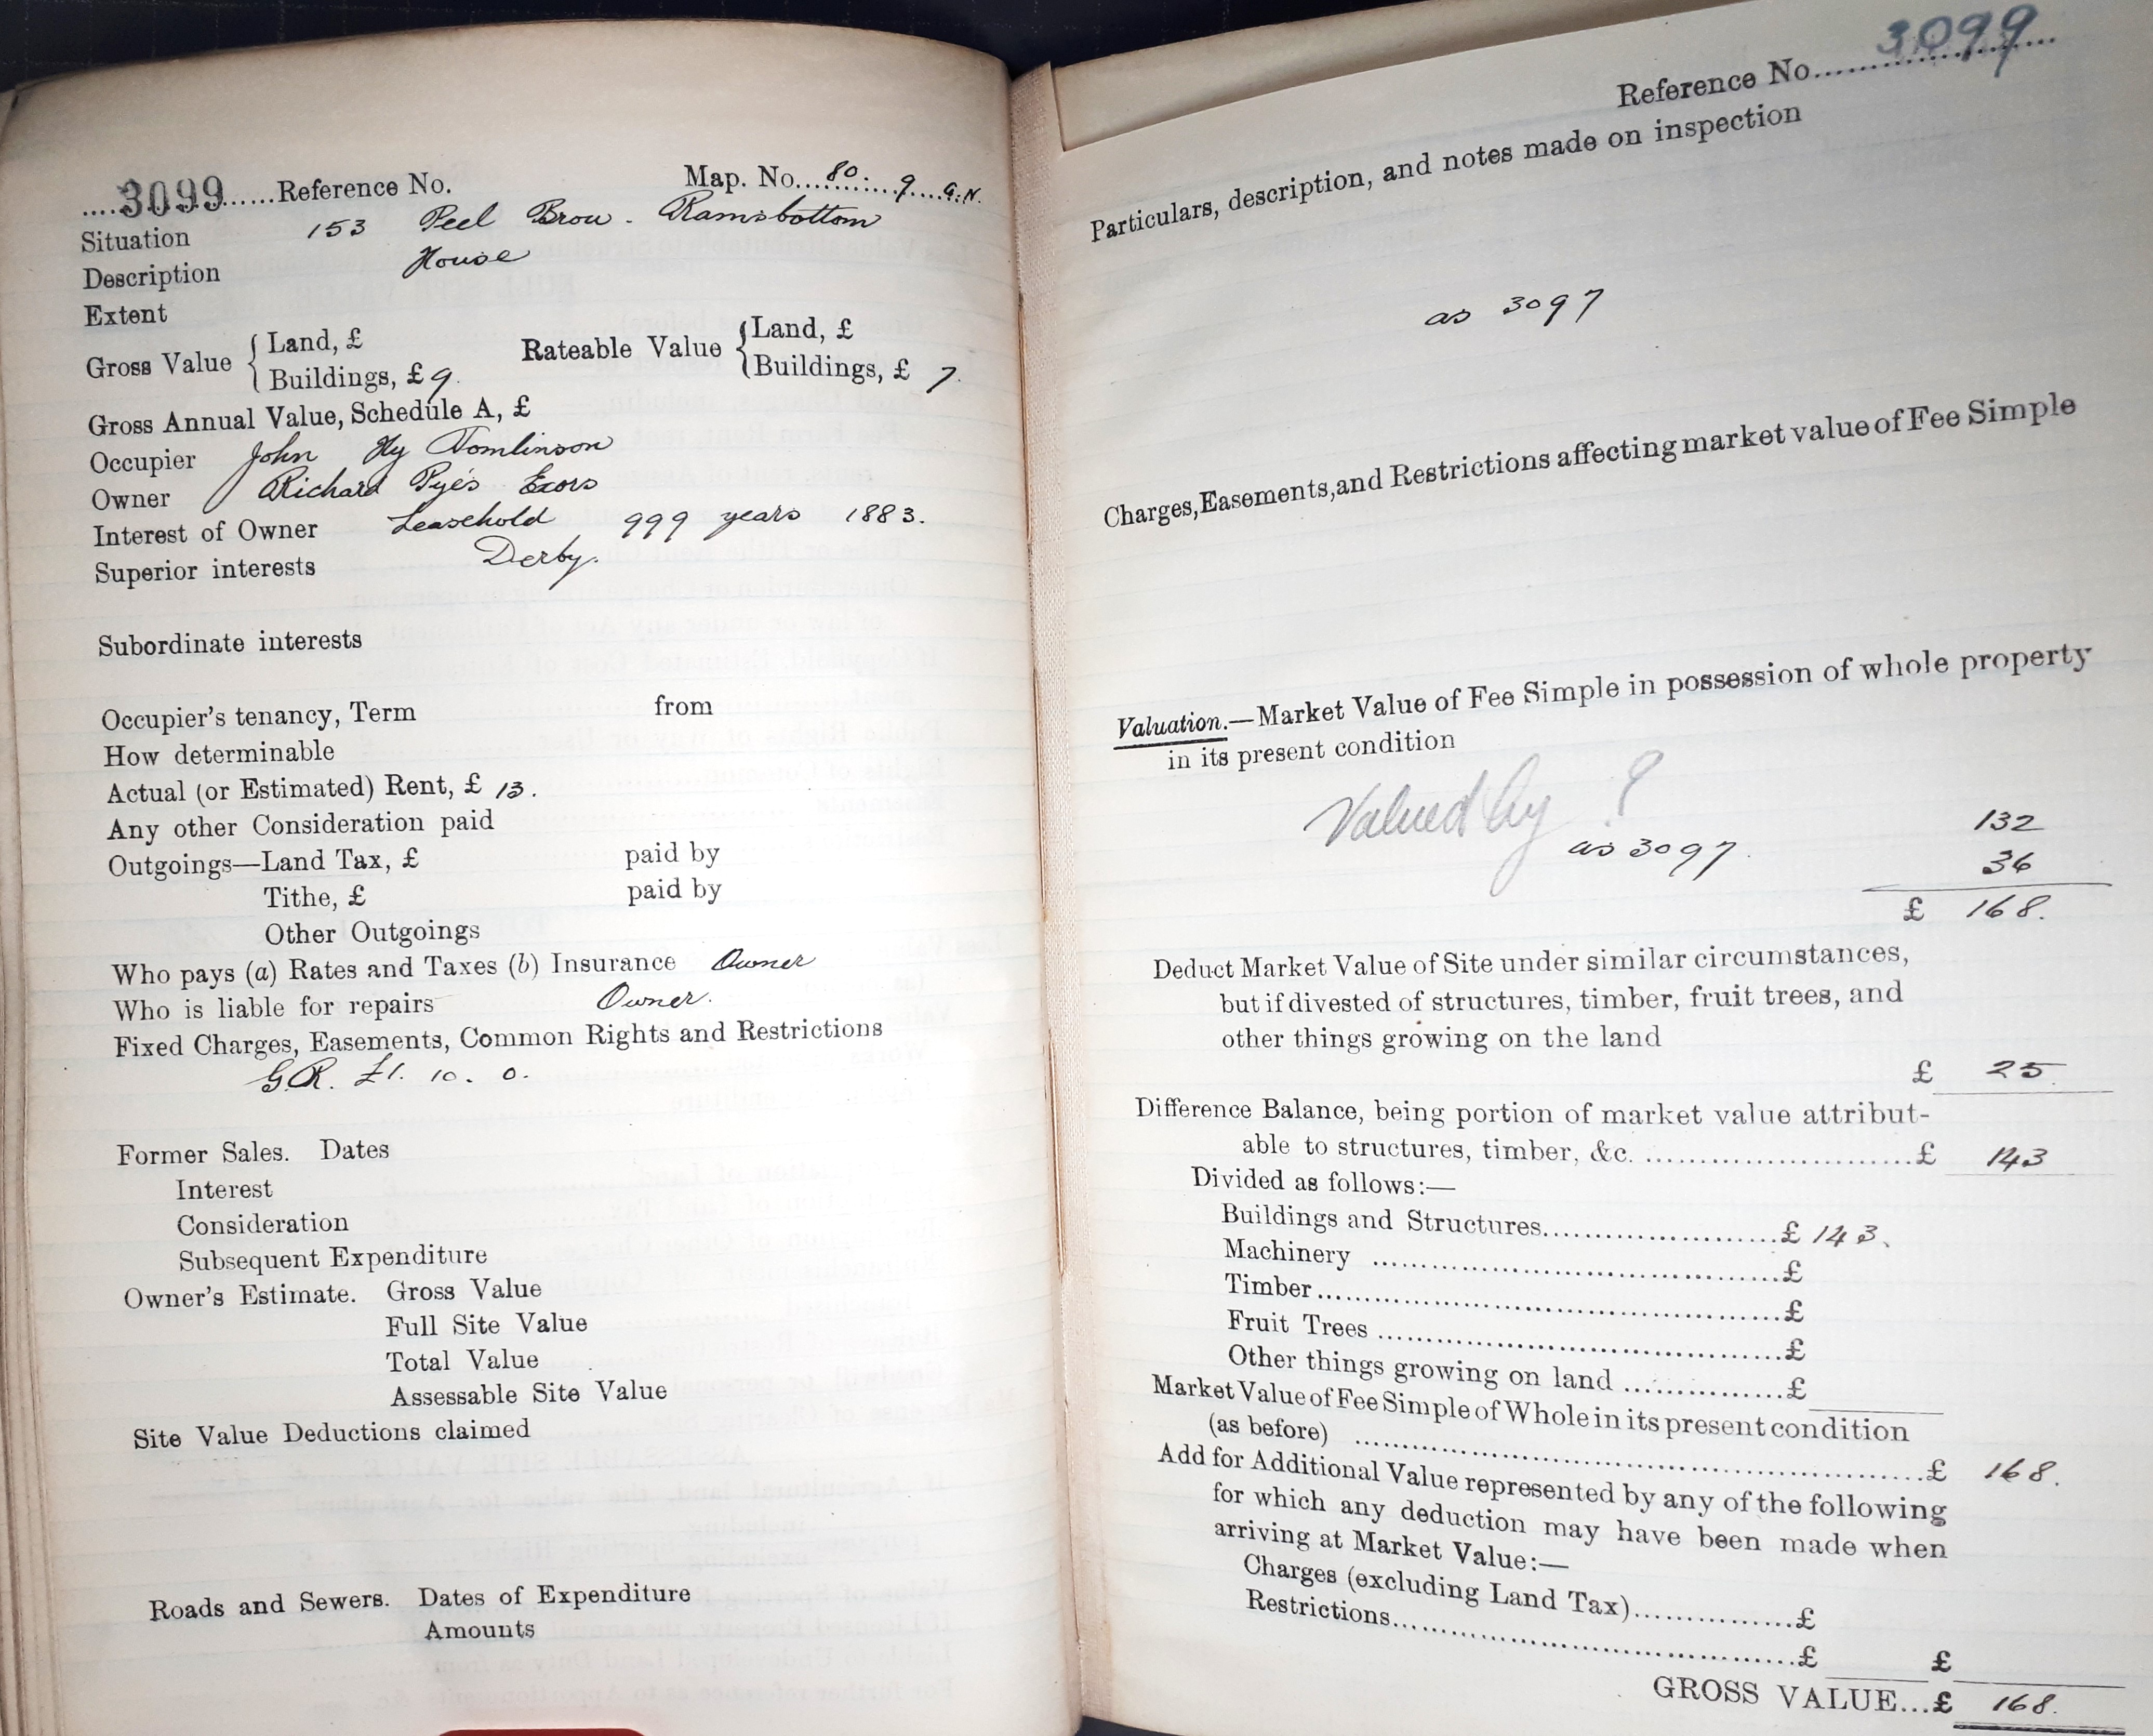 ....3099......Reference No. Map. No...80:...9...G.N.
Situation 153 Peel Brow - Ramsbottom
Description House
Extent
Gross Value { Land, £ Rateable Value { Land, £
Buildings, £ 9. Buildings, £ 7.
Gross Annual Value, Schedule A, £
Occupier John Hy Tomlinson
Owner Richard Pye's Exors
Interest of Owner Leasehold 999 years 1883.
Superior interests Derby.
Subordinate interests
Occupier's tenancy, Term from
How determinable
Actual (or Estimated) Rent, £ 13.
Any other Consideration paid
Outgoings—Land Tax, £ paid by
Tithe, £ paid by
Other Outgoings
Who pays (a) Rates and Taxes (b) Insurance Owner
Who is liable for repairs Owner.
Fixed Charges, Easements, Common Rights and Restrictions
G.R. £1. 10. 0.
Former Sales. Dates
Interest
Consideration
Subsequent Expenditure
Owner's Estimate. Gross Value
Full Site Value
Total Value
Assessable Site Value
Site Value Deductions claimed
Roads and Sewers. Dates of Expenditure
Amounts
Reference No. 3099
Particulars, description, and notes made on inspection
as 3097
Charges, Easements, and Restrictions affecting market value of Fee Simple
Valuation.—Market Value of Fee Simple in possession of whole property
in its present condition
Valued by ?
132
as 3097.
36
£ 168.
Deduct Market Value of Site under similar circumstances,
but if divested of structures, timber, fruit trees, and
other things growing on the land
£ 25.
Difference Balance, being portion of market value attribut-
able to structures, timber, &c. ........................£ 143
Divided as follows:—
Buildings and Structures........................£ 143.
Machinery ........................£
Timber........................£
Fruit Trees ........................£
Other things growing on land ................£
Market Value of Fee Simple of Whole in its present condition
(as before) ........................£ 168.
Add for Additional Value represented by any of the following
for which any deduction may have been made when
arriving at Market Value:—
Charges (excluding Land Tax)................£
Restrictions........................£ £
GROSS VALUE...£ 168.